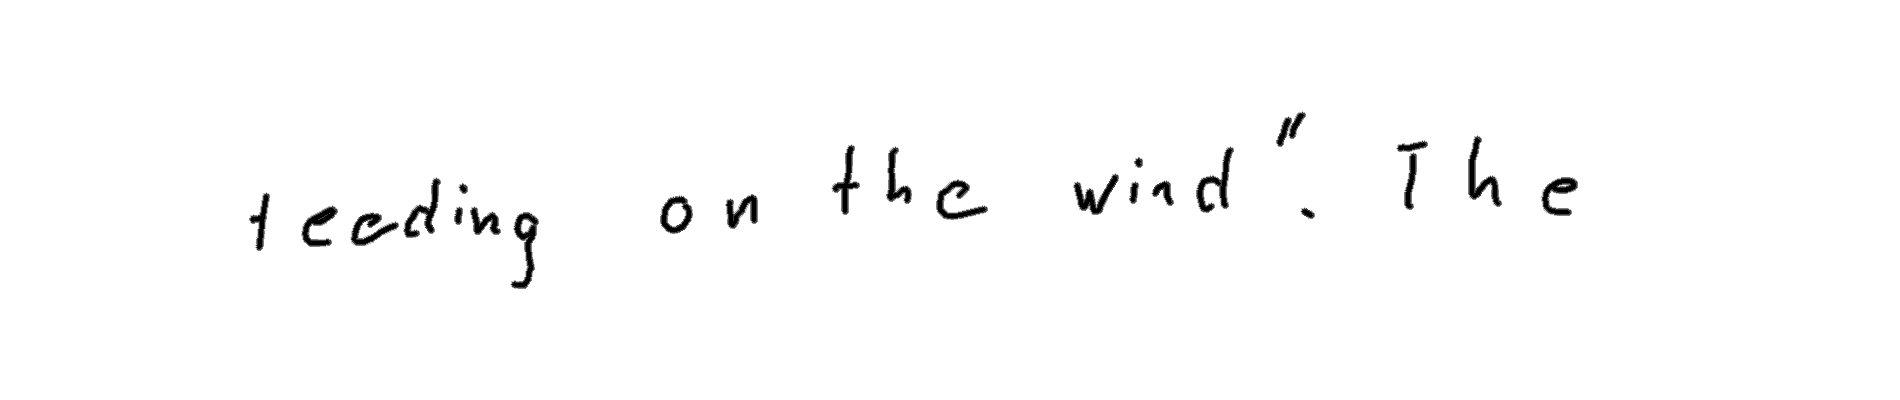 feeding on the wind". The